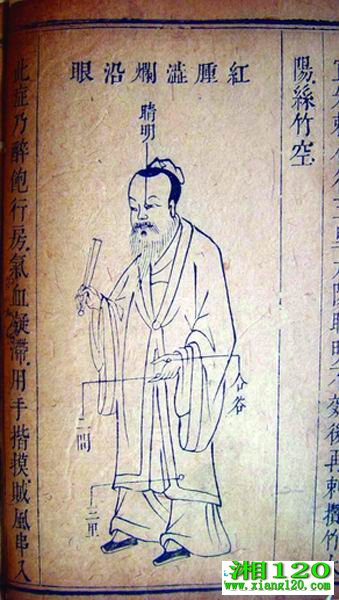 太陽睛明不效後再刺攢竹
陽絲竹空
紅腫澁爛沿眼
睛明
合谷
二間
三里
此症乃醉飽行房氣血凝滯用手揩摸賊風串入
湘120
www.xiang120.com